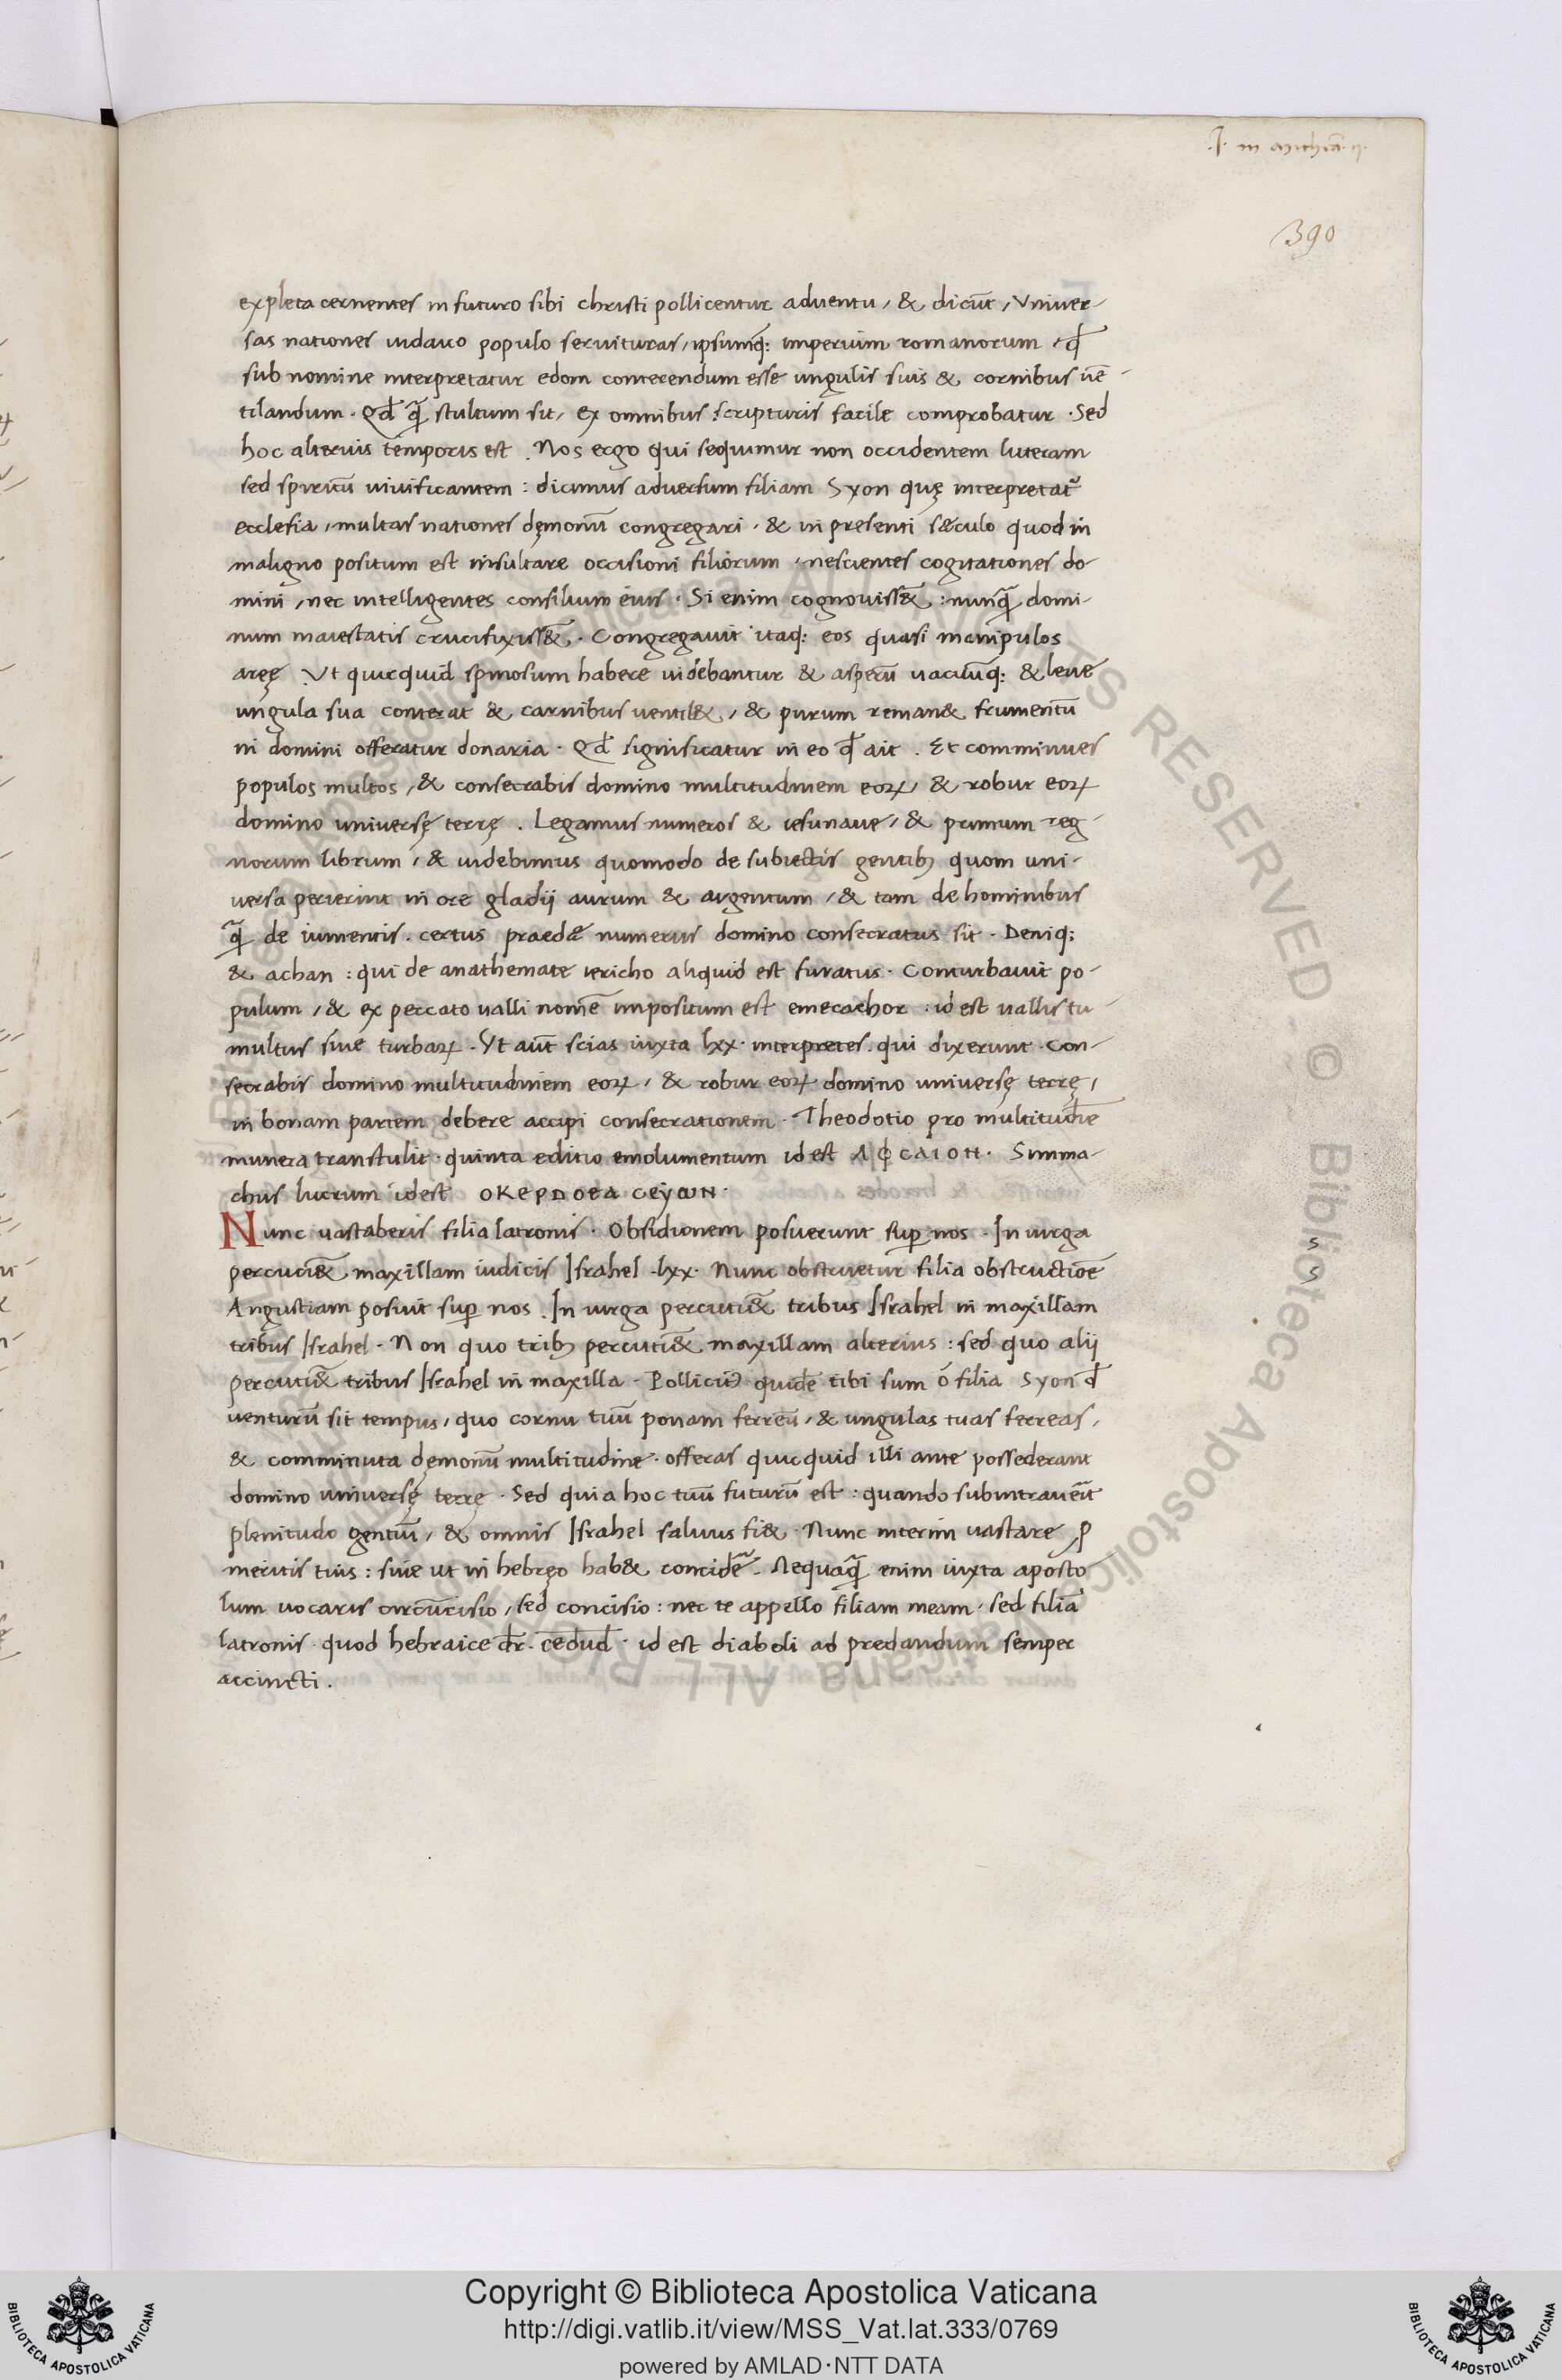 390
expleta cernentes in futuro sibi christi pollicentur aduentu, & dicūt, Vniuer-
sas nationes iudaico populo seruituras, ipsumq; imperium romanorum, qđ
sub nomine interpretatur edom conterendum esse ungulis suis & cornibus uē-
tilandum. Qđ q̃ stultum sit, ex omnibus scripturis facile comprobatur. Sed
hoc alterius temporis est. Nos ergo qui sequimur non occidentem litteram
sed spiritū uiuificantem: dicimus aduersum filiam Syon quę interpretat᷑
ecclesia, multas nationes dęmonū congregari, & in presenti sæculo quod in
maligno positum est insultare occisioni filiorum, nescientes cogitationes do-
mini, nec intelligentes consilium eius. Si enim cognouiss&̃: nunq̃ domi-
num maiestatis crucifixiss&̃. Congregauit itaq; eos quasi manipulos
aręę. Vt quicquid spinosum habere uidebantur & asperū uacuūq; & leue
ungula sua conterat & carnibus uentil&, & purum reman& frumentū
in domini offeratur donaria. Qđ significatur in eo qđ ait. Et comminues
populos multos, & consecrabis domino multitudinem eoꝝ, & robur eoꝝ
domino uniuersę terrę. Legamus numeros & iesu naue, & primum reg-
norum librum, & uidebimus quomodo de subiectis gentibꝫ quom uni-
uersa perierint in ore gladij aurum & argentum, & tam de hominibus
q̃ de iumentis. certus praedæ numerus domino consecratus sit. Deniq;
& achan: qui de anathemate iericho aliquid est furatus. Conturbauit po-
pulum, & ex peccato ualli nomē impositum est emecachor: id est uallis tu-
multus siue turbaꝝ. Vt aūt scias iuxta lxx. interpretes. qui dixerunt. Con-
secrabis domino multitudinem eoꝝ, & robur eoꝝ domino uniuersę terrę,
in bonam partem debere accipi consecrationem. Theodotio pro multitudīe
munera transtulit. quinta editio emolumentum id est ΛΦCΛΙΟΗ. Simma-
chus lucrum id est ΟΚΕΡDΟΕΑ CΕΥΩΝ.
Nunc uastaberis filia latronis. Obsidionem posuerunt suꝑ nos. In uirga
percuti&̃ maxillam iudicis Israhel. lxx. Nunc obstruetur filia obstructiōe
Angustiam posuit suꝑ nos. In uirga percuti&̃ tribus Israhel in maxillam
tribus Israhel. Non quo tribꝫ percuti&̃ maxillam alterius: sed quo alij
percuti&̃ tribus Israhel in maxilla. Pollicitꝰ quidē tibi sum ó filia Syon qđ
uenturū sit tempus, quo cornu tuū ponam ferreū, & ungulas tuas ferreas,
& comminuta dęmonū multitudine. offeras quicquid illi ante possederant
domino uniuersę terrę. Sed quia hoc tuū futurū est: quando subintrauēit
plenitudo gentiū, & omnis Israhel saluus fi&. Nunc interim uastare ꝓ
meritis tuis: siue ut in hebręo hab& concidē. Nequaq̃ enim iuxta aposto
lum uocaris circūcisio, sed concisio: nec te appello filiam meam. sed filiā
latronis. quod hebraice dr̄. cedud. id est diaboli ad predandum semper
accincti.
Copyright © Biblioteca Apostolica Vaticana
http://digi.vatlib.it/view/MSS_Vat.lat.333/0769
powered by AMLAD·NTT DATA